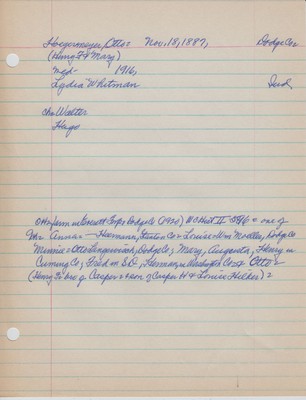 Hoegermeyer, Otto = Nov. 18, 1887, Dodge Co
(Henry F & Mary)
Md - 1916,
Lydia Whitman Ind,
Ch = Walter
Hugo
Otto farm in Everett Twps Dodge Co (1920) W C Hist II = 5846 = one of
Mr Anna = Hermann, Stanton Co = Louise = Wm Moeller, Dodge Co
Minnie = Otto Langewisch, Dodge Co; Mary, Augusta, Henry in
Cuming Co; Fred in S.D, Herman, in Washington Co = & Otto =
(Henry F = bro of Casper = son of Casper H & Louise Hilker) =